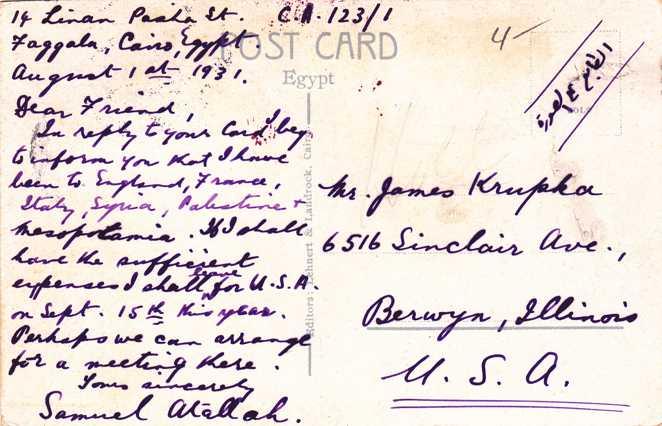 14 Linan Pasha St. C.A. 123/1
Faggala, Cairo, Egypt.
August 1st 1931.
POST CARD
Egypt
4
Dear Friend,
In reply to your Card I beg
to inform you that I have
been to England, France,
Italy, Syria, Palestine +
Mesopotamia. If I shall
have the sufficient
expenses I shall leave for U.S.A.
on Sept. 15th this year.
Perhaps we can arrange
for a meeting there.
Yours sincerely
Samuel Atallah.
Editors: Lehnert & Landrock, Cairo
الطابع
Mr. James Krupka
6516 Sinclair Ave.,
Berwyn, Illinois
U. S. A.